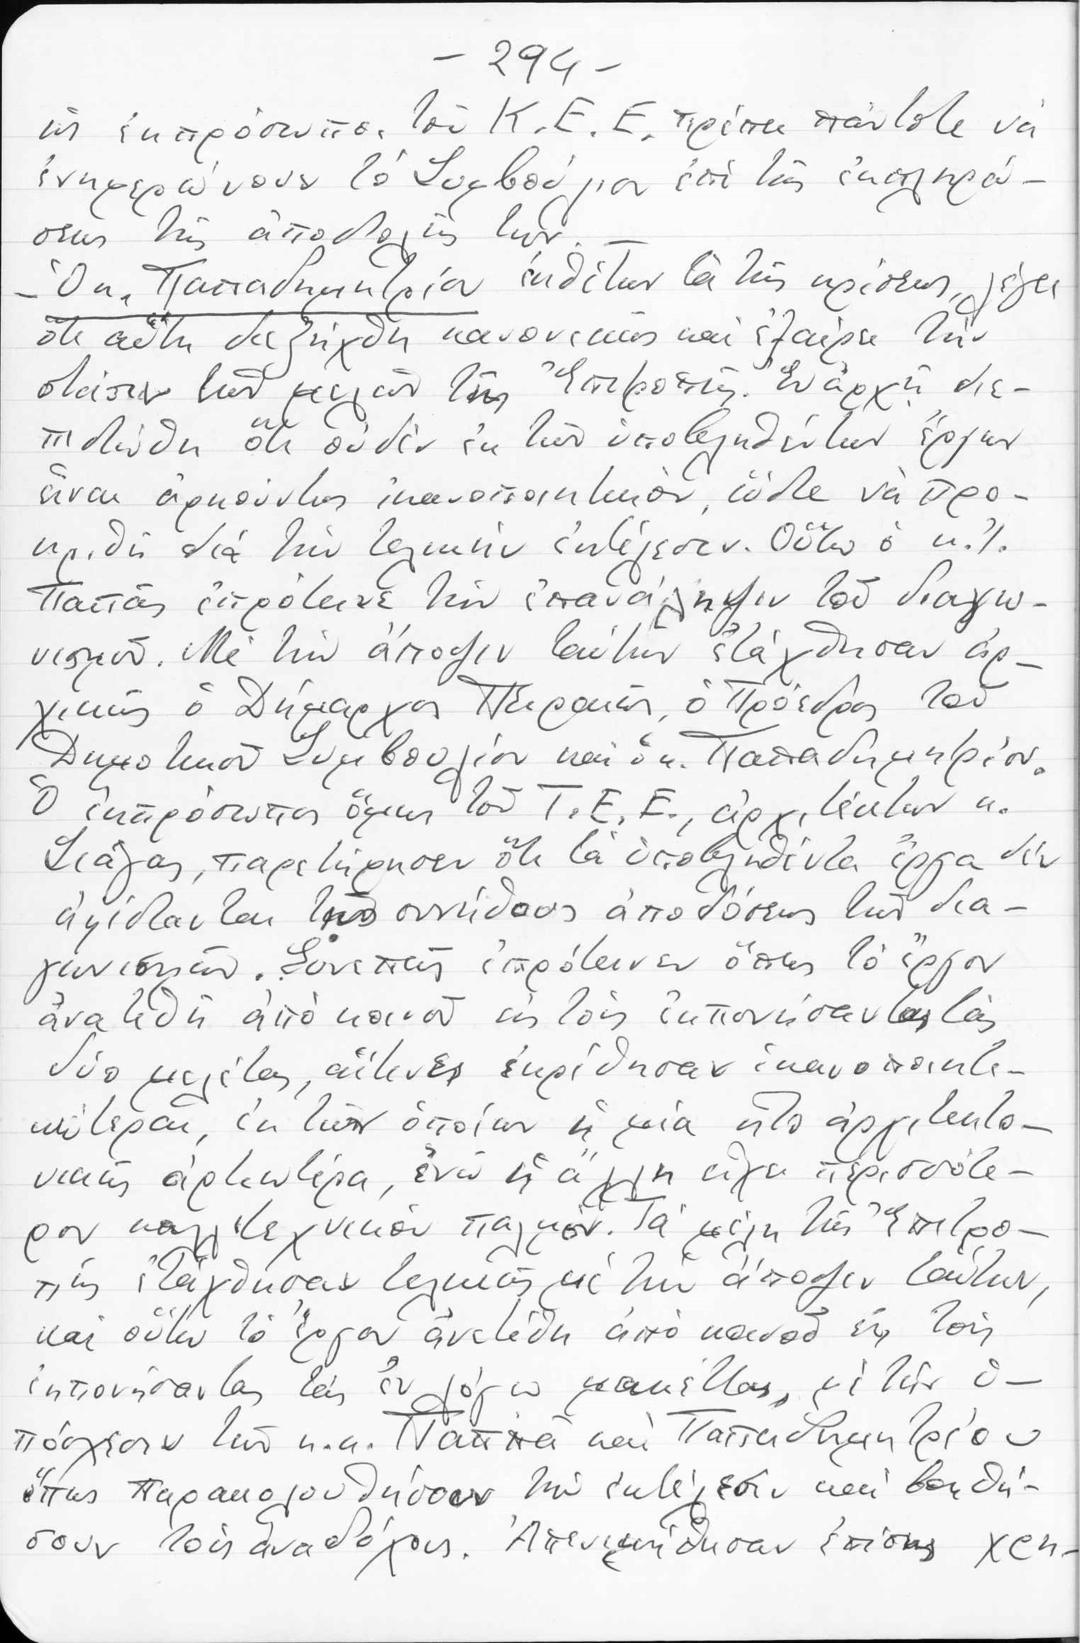 - 294 -
ὡς ἐκπρόσωποι τοῦ Κ.Ε.Ε. πρέπει πάντοτε νά
ἐνημερώνουν τό Συμβούλιον ἐπί τῆς ἐκπληρώ-
σεως τῆς ἀποστολῆς των.
- Ὁ κ. Παπαδημητρίου ἐκθέτων τά τῆς κρίσεως, λέγει
ὅτι αὕτη διεξήχθη κανονικῶς καί ἐξαίρει τήν
στάσιν τῶν μελῶν τῆς Ἐπιτροπῆς. Ἐν ἀρχῇ διε-
πιστώθη ὅτι οὐδέν ἐκ τῶν ὑποβληθέντων ἔργων
εἶναι ἀρκούντως ἱκανοποιητικόν, ὥστε νά προ-
κριθῆ διά τήν τελικήν ἐκτέλεσιν. Οὕτω ὁ κ. Ι.
Παππᾶς ἐπρότεινε τήν ἐπανάληψιν τοῦ διαγω-
νισμοῦ. Μέ τήν ἄποψιν ταύτην ἐτάχθησαν ἀρ-
χικῶς ὁ Δήμαρχος Πειραιῶς, ὁ Πρόεδρος τοῦ
Δημοτικοῦ Συμβουλίου καί ὁ κ. Παπαδημητρίου.
Ὁ ἐκπρόσωπος ὅμως τοῦ Τ.Ε.Ε., ἀρχιτέκτων κ.
Σιάγας, παρετήρησεν ὅτι τά ὑποβληθέντα ἔργα δέν
ἀφίστανται τῆς συνήθους ἀποδόσεως τῶν δια-
γωνισμῶν. Συνεπῶς ἐπρότεινεν ὅπως τό ἔργον
ἀνατεθῆ ἀπό κοινοῦ εἰς τούς ἐκπονήσαντας τάς
δύο μελέτας, αἵτινες ἐκρίθησαν ἱκανοποιητι-
κώτεραι, ἐκ τῶν ὁποίων ἡ μία ἦτο ἀρχιτεκτο-
νικῶς ἀρτιωτέρα, ἐνῶ ἡ ἄλλη εἶχε περισσότε-
ρον καλλιτεχνικόν παλμόν. Τά μέλη τῆς Ἐπιτρο-
πῆς ἐτάχθησαν τελικῶς μέ τήν ἄποψιν ταύτην,
καί οὕτω τό ἔργον ἀνετέθη ἀπό κοινοῦ εἰς τούς
ἐκπονήσαντας τάς ἐν λόγῳ μακέττας, μέ τήν ὑ-
πόσχεσιν τῶν κ.κ. Παππᾶ καί Παπαδημητρίου
ὅπως παρακολουθήσουν τήν ἐκτέλεσιν καί βοηθή-
σουν τούς ἀναδόχους. Ἀπενεμήθησαν ἐπίσης χρη-